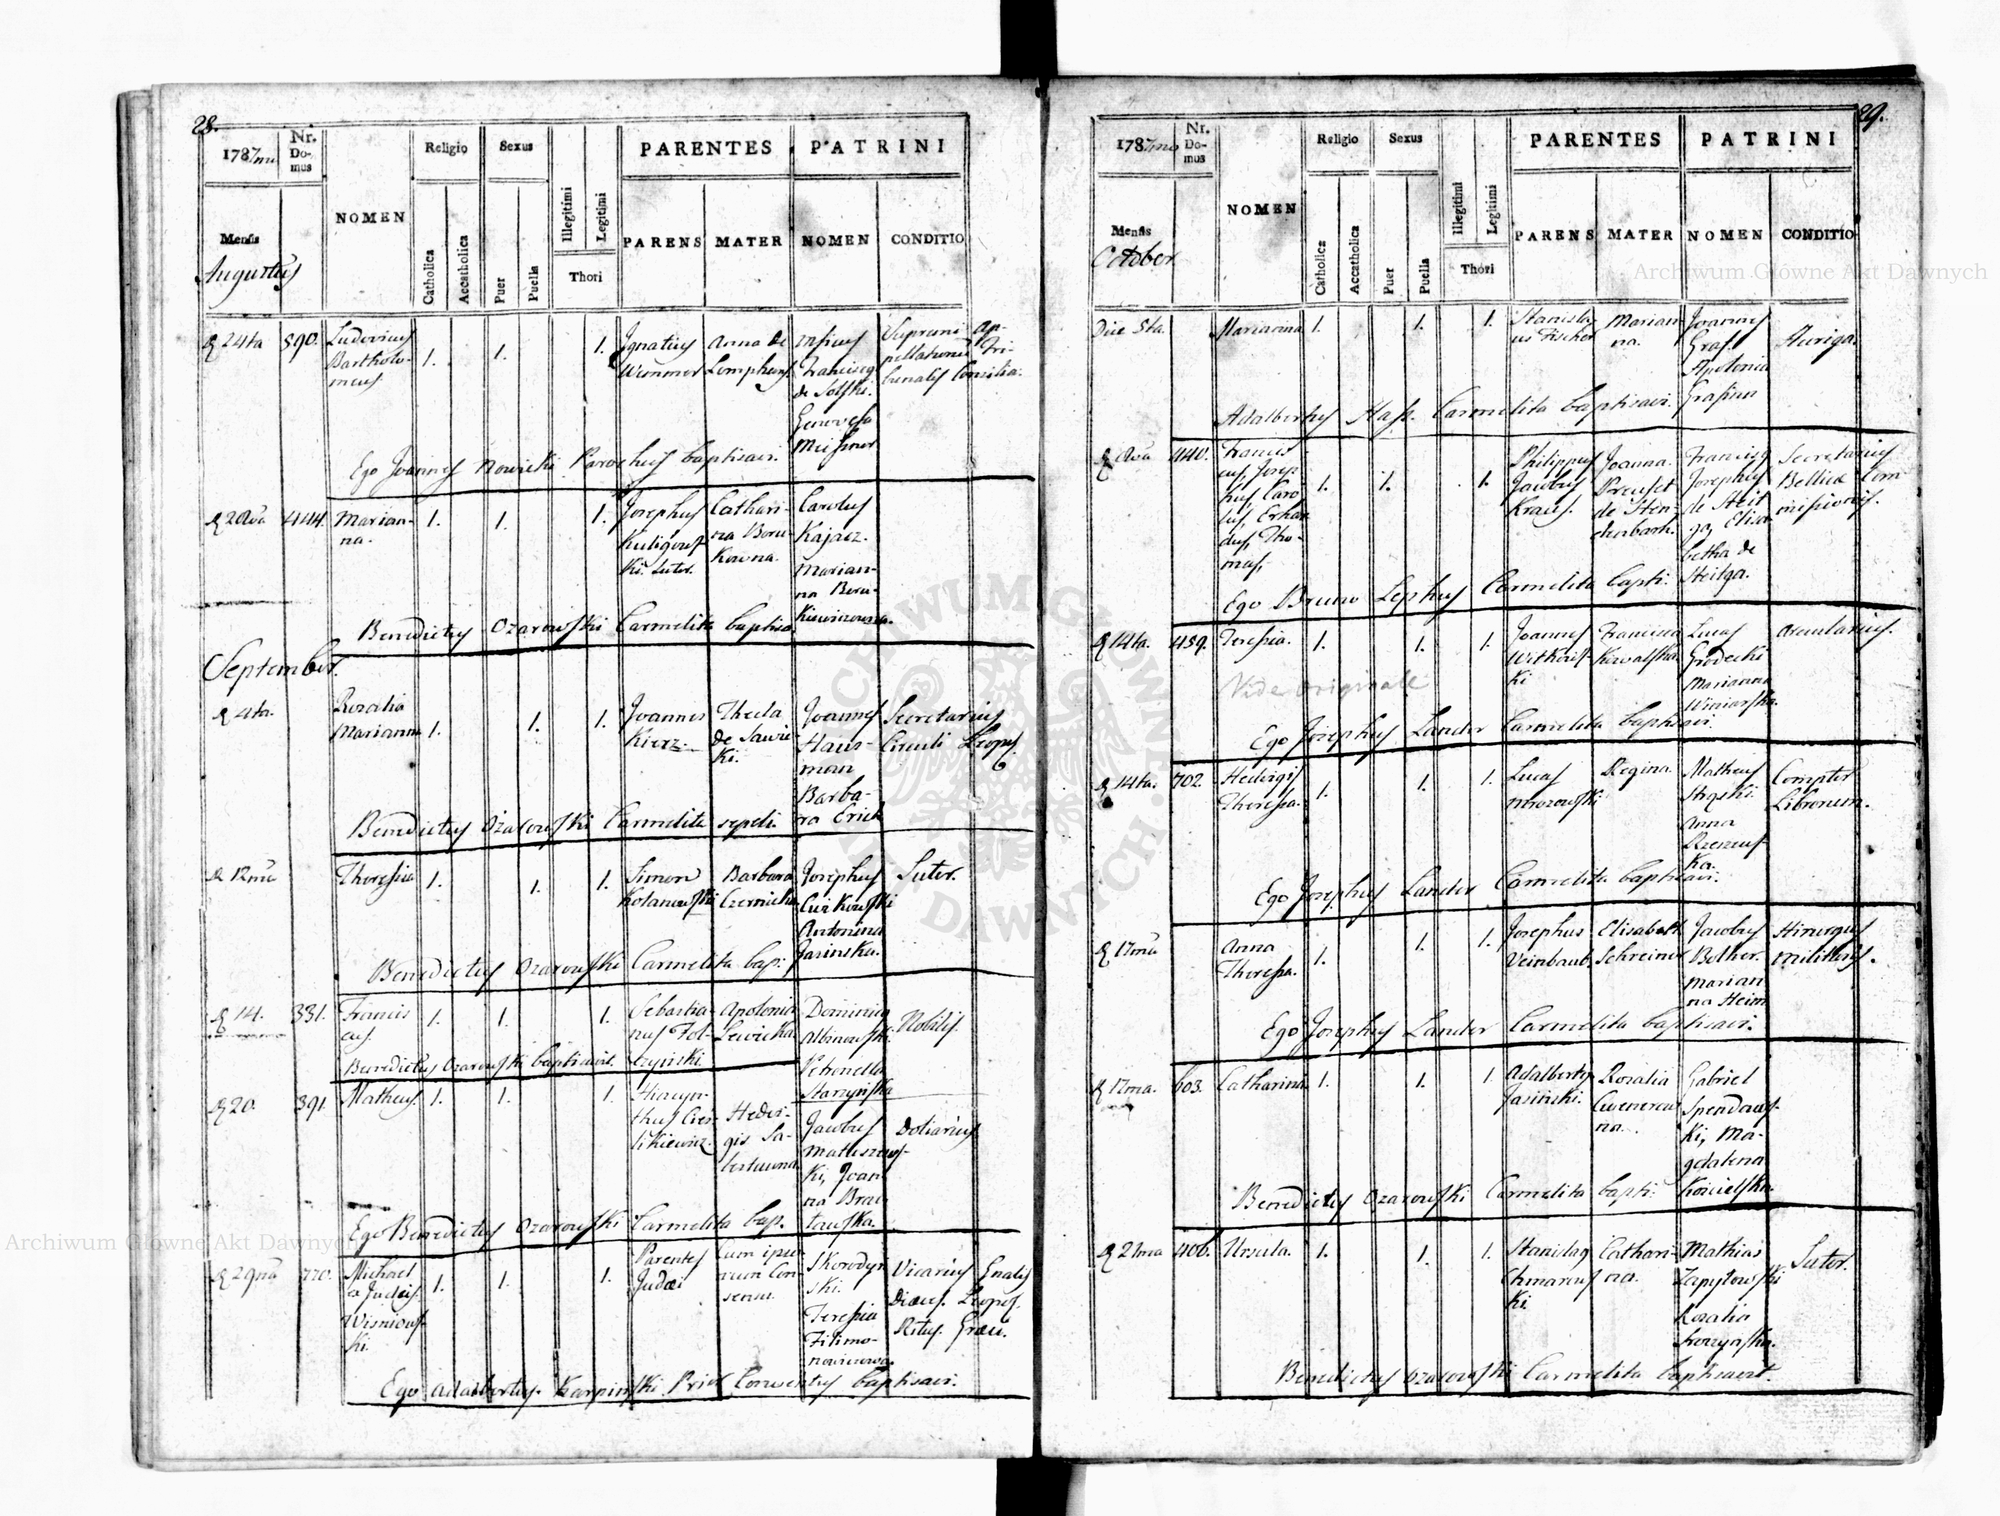 28.
1787mi
Nr. Do- mus
NOMEN
Religio
Sexus
Illegitimi
Legitimi
PARENTES
PATRINI
Mensis
Augustus
Catholica
Accatholica
Puer
Puella
Thori
PARENS
MATER
NOMEN
CONDITIO
24ta 390. Ludovicus Bartholo- meus 1. 1. 1. Ignatius Wimmer Anna de
Franciscq de Solski. Genovefa Meissner
Supremi Ap- pellationis Tri- bunalis Consilia.
Ego Joannes Nowicki Parochus baptisavi.
444. Marian- na. 1. 1. 1. Josephus Kuligows- ki. Sutor. Cathari- na Boru- kowna. Carolus Kajacz. Marian- na Boru- kiewiczowna.
Benedictus Ozarowski Carmelita baptisa
September.
4ta. Rozalia Marianna 1. 1. 1. Joannes Kierz Thecla de Sawic- ki. Joannes Haus- man Barba- ra Erick Secretarius Circuli Leopol.
Benedictus Ozarowski Carmelita
12ma Theresia 1. 1. 1. Simon Kolanowski Barbara Czernicka Josephus Cwikowski Antonina Jasinska. Sutor.
Benedictus Ozarowski Carmelita bap:
14. 331. Francis cus. 1. 1. 1. Sebastia- nus Fol- czynski. Apolonia Lewicka. Dominicq Albinowski. Petronella Starzynska Nobilis.
Benedictus Ozarowski baptisavit.
20. 391. Matheus. 1. 1. 1. Hiacyn- thus Cies- likiewicz. Hedvi- gis Sa- Jacobus Matuszews- ki, Joan na Brac- lawska. Doliarius
Ego Benedictus Ozarowski Carmelita bap.
29na 770. Michael a Judæis Wisniows- ki. 1. 1. 1. Parentes Judæi Cum ipso- rum Con- sensu. Skorodyn- ski. Teresia Filimo- nowiczowa. Vicarius Gnalis Diæces. Leopol. Ritus. Græci.
Ego Adalbertus Karpinski Prior Conventus baptisavi.
29.
1787mo
Nr. Do- mus
NOMEN
Religio
Sexus
Illegitimi
Legitimi
PARENTES
PATRINI
Mensis
October
Catholica
Accatholica
Puer
Puella
Thori
PARENS
MATER
NOMEN
CONDITIO
Die 5ta. Marianna 1. 1. 1. Stanisla- us Fischer Marian- na. Joannes Graf. Apolonia Grafin Auriga.
Adalbertus Hass. Carmelita baptisavi.
440. Francis cus, Josep hus, Caro lus, Erhar dus, Tho- mas, 1. 1. 1. Philippus Jacobus Kraus. Joanna. Francisq Josephus de Steit- ga, Elisa- betha de Steitga. Secretarius Bellicæ Com missionis.
Ego Bruno Carmelita bapti:
14ta. 459. Teresia. 1. 1. 1. Joannes Witkows- ki Francisca Kowalska Lucas Grodecki Marianna Winiarska. Arcularius.
Vide originale
Ego Josephus Lander Carmelita baptisavi.
14ta. 702. Hedvigis Theresia. 1. 1. 1. Lucas Mrozowski Regina. Matheus Anna Rzeszus- ka. Compter Librorum.
Ego Josephus Lander Carmelita baptisavi.
17ma Anna Theresia. 1. 1. 1. Josephus Veinbaub. Elisabeth Schreiner Jacobus Bether. Marian na Heim Hirurgus Militaris.
Ego Josephus Lander Carmelita baptisavi.
17ma. 603. Catharina 1. 1. 1. Adalbertus Jasinski. Rozalia Gabriel Spendows- ki, Ma- gdalena Koscielska.
Benedictus Ozarowski Carmelita bapti:
21ma 406. Ursula. 1. 1. 1. Stanislaq Chmarows- ki Cathari- na. Mathias Zapytowski Rozalia Sutor.
Benedictus Ozarowski Carmelita baptisavit.
Archiwum Główne Akt Dawnych
Archiwum Główne Akt Dawnych
ARCHIWUM GŁÓWNE AKT DAWNYCH